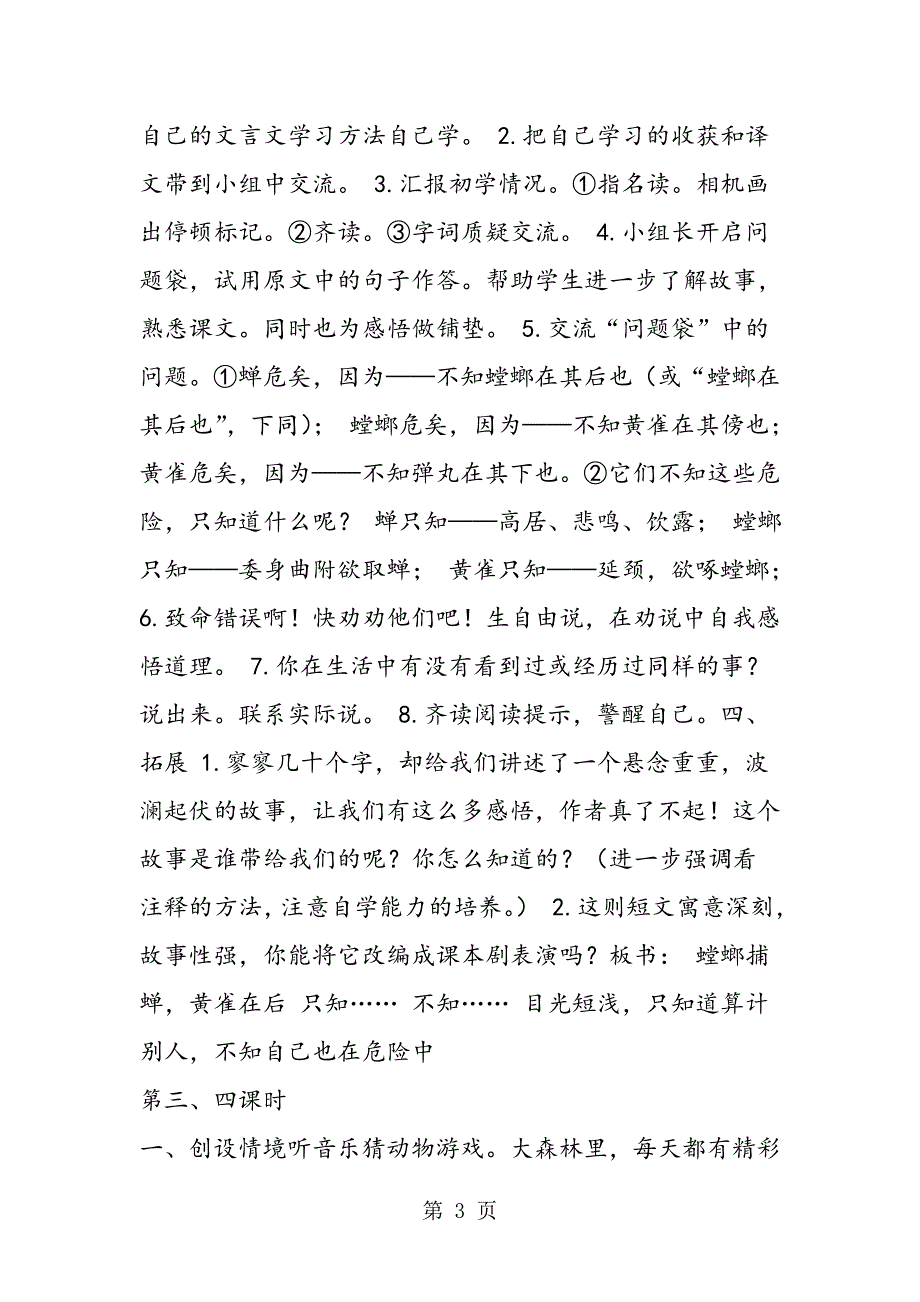 自己的文言文学习方法自己学。 2.把自己学习的收获和译
文带到小组中交流。 3.汇报初学情况。①指名读。相机画
出停顿标记。②齐读。③字词质疑交流。 4.小组长开启问
题袋，试用原文中的句子作答。帮助学生进一步了解故事，
熟悉课文。同时也为感悟做铺垫。 5.交流“问题袋”中的
问题。①蝉危矣，因为——不知螳螂在其后也（或“螳螂在
其后也”，下同）； 螳螂危矣，因为——不知黄雀在其傍也；
黄雀危矣，因为——不知弹丸在其下也。②它们不知这些危
险，只知道什么呢？ 蝉只知——高居、悲鸣、饮露； 螳螂
只知——委身曲附欲取蝉； 黄雀只知——延颈，欲啄螳螂；
6.致命错误啊！快劝劝他们吧！生自由说，在劝说中自我感
悟道理。 7.你在生活中有没有看到过或经历过同样的事？
说出来。联系实际说。 8.齐读阅读提示，警醒自己。四、
拓展 1.寥寥几十个字，却给我们讲述了一个悬念重重，波
澜起伏的故事，让我们有这么多感悟，作者真了不起！这个
故事是谁带给我们的呢？你怎么知道的？（进一步强调看
注释的方法,注意自学能力的培养。） 2.这则短文寓意深刻，
故事性强，你能将它改编成课本剧表演吗？板书： 螳螂捕
蝉，黄雀在后 只知…… 不知…… 目光短浅，只知道算计
别人，不知自己也在危险中
第三、四课时
一、创设情境听音乐猜动物游戏。大森林里，每天都有精彩
第 3 页